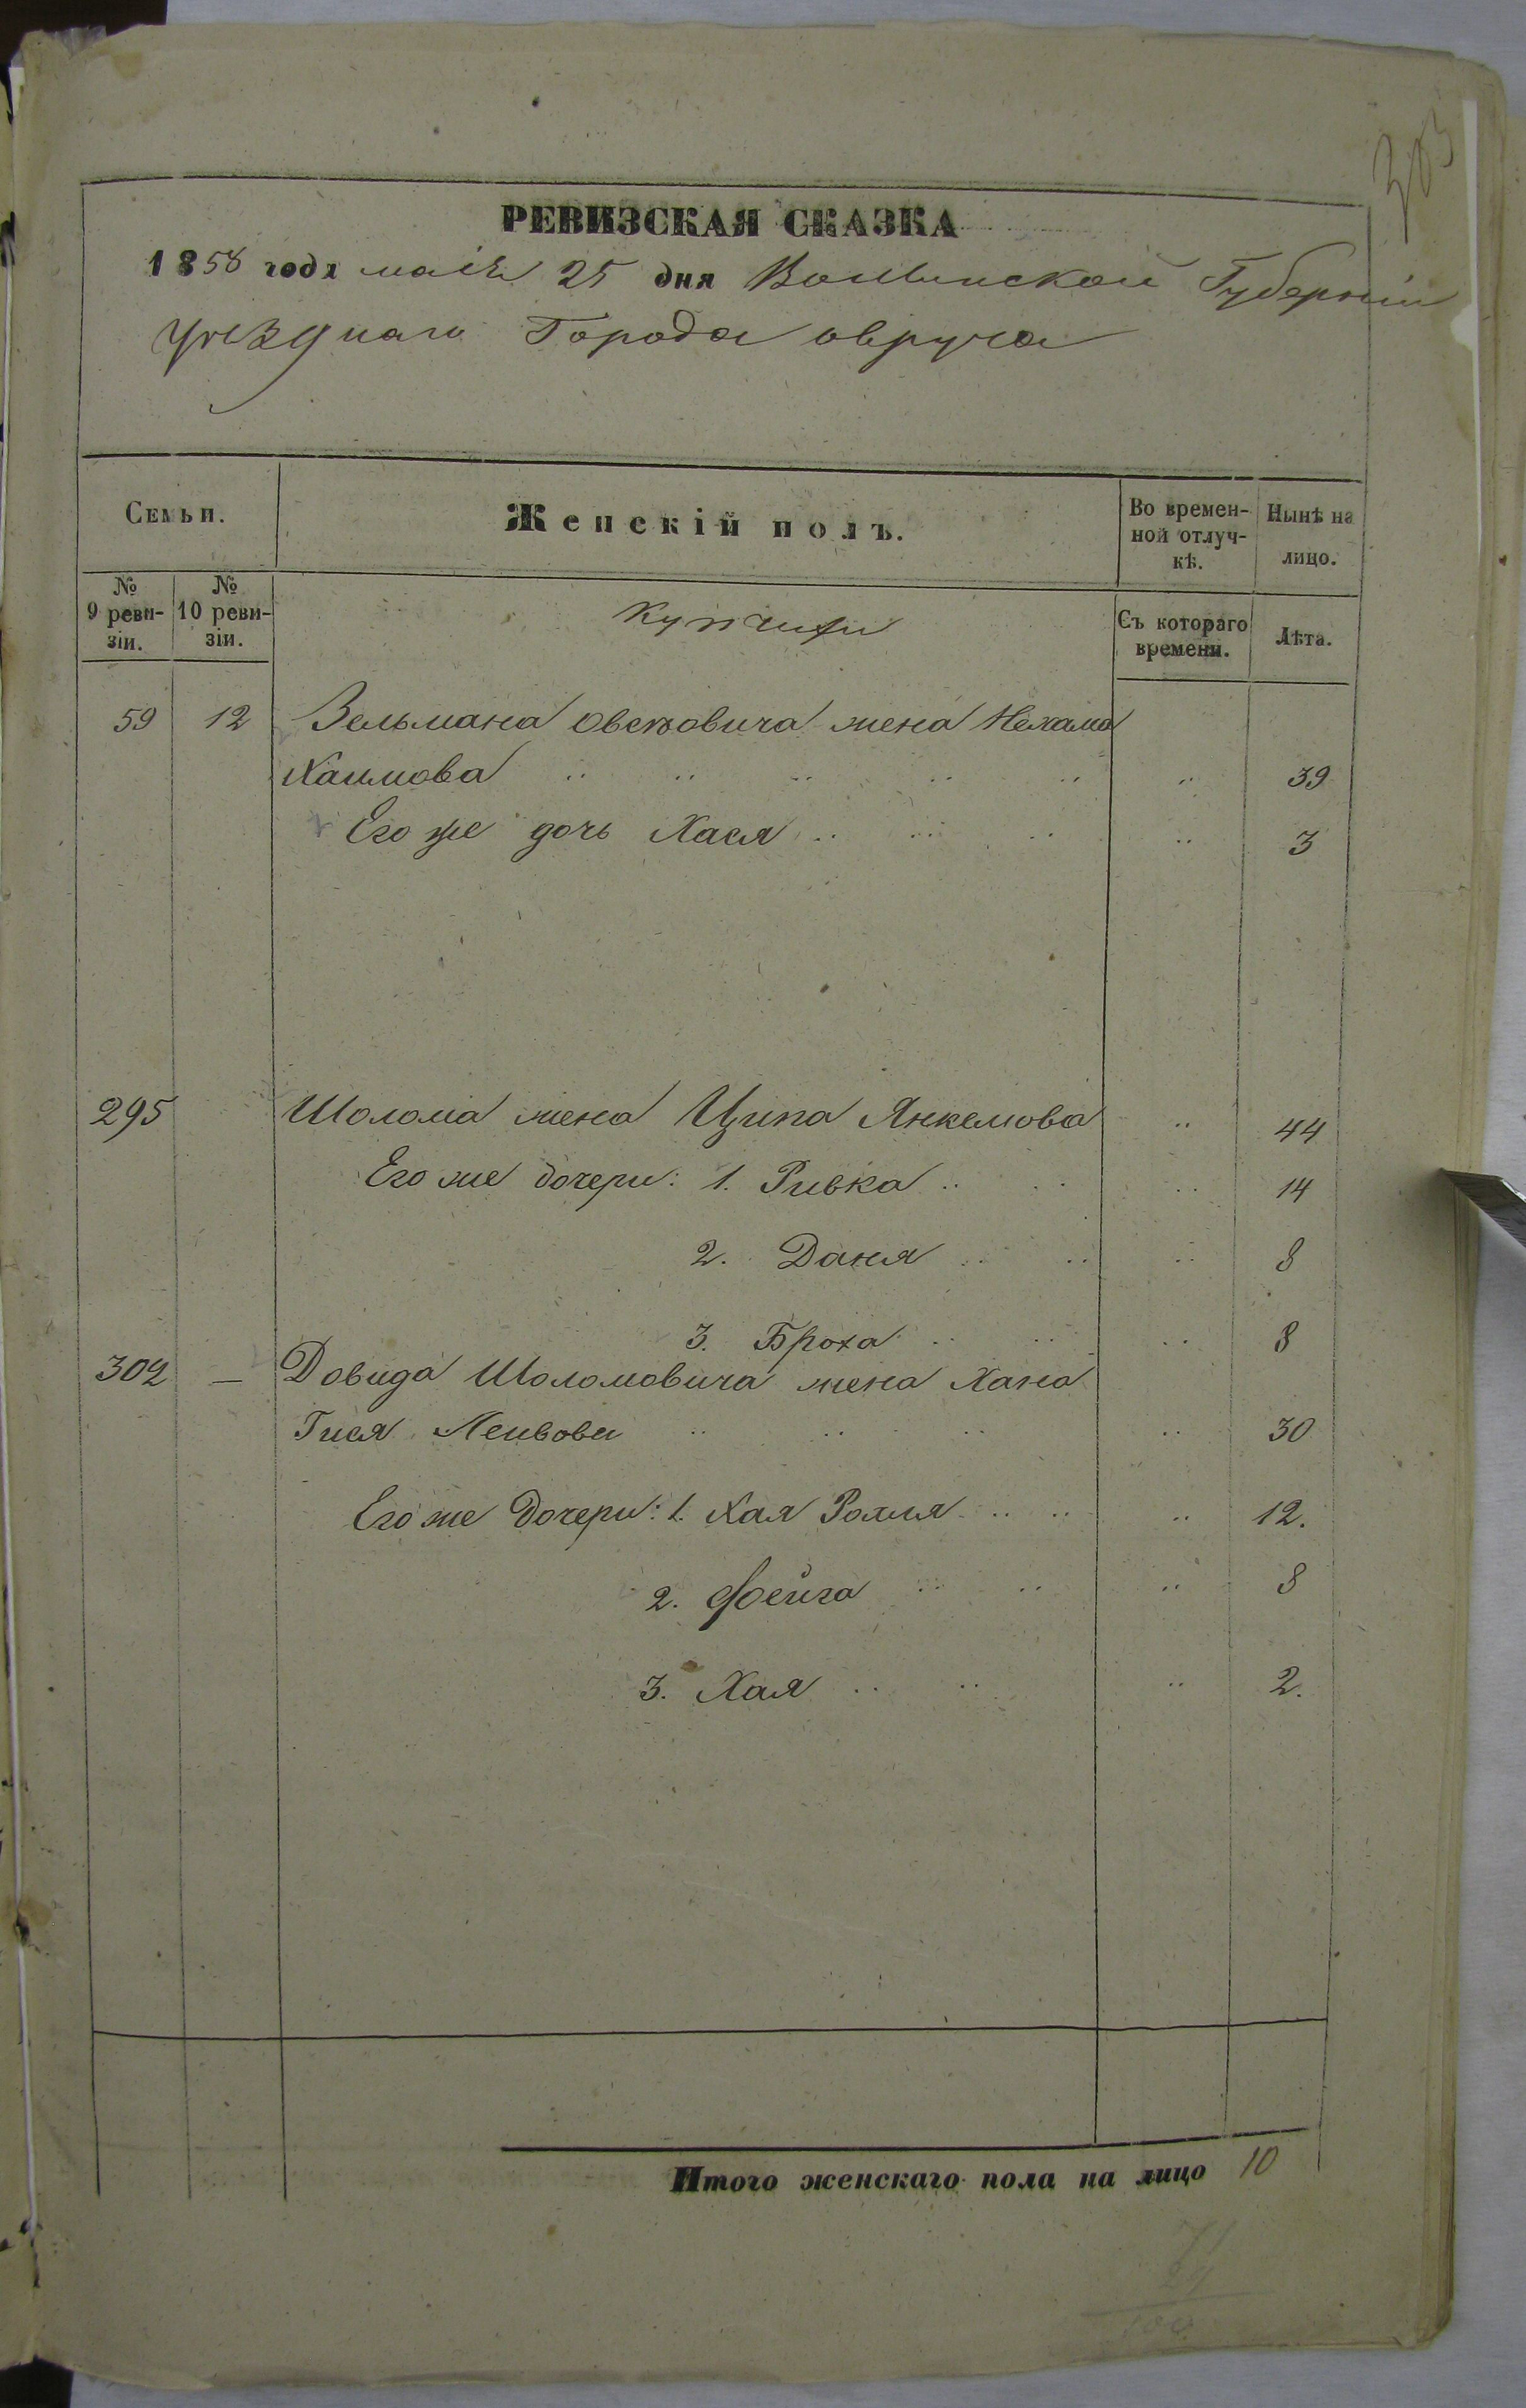 РЕВИЗСКАЯ СКАЗКА
1858 года маія 25 дня Волынской Губерніи
уѣзднаго Города овруча
Семьи.
Женскій полъ.
Во времен-
ной отлуч-
кѣ.
Нынѣ на
лицо.
№
9 реви-
зіи.
№
10 реви-
зіи.
Съ котораго
времени.
Лѣта.
59 12 Зельмана Овсеовича жена Нехама
Хаимова 39
Его же дочь Хася 3
295 Шолома жена Ципа Янкелова 44
Его же дочери: 1. Ривка 14
2. Даня 8
3. Броха 8
302 — Довида Шоломовича жена Хана
Гися Леибова 30
Его же Дочери: 1. Хая Рохля 12.
2. Фейга 8
3. Хая 2.
Итого женскаго пола на лицо 10